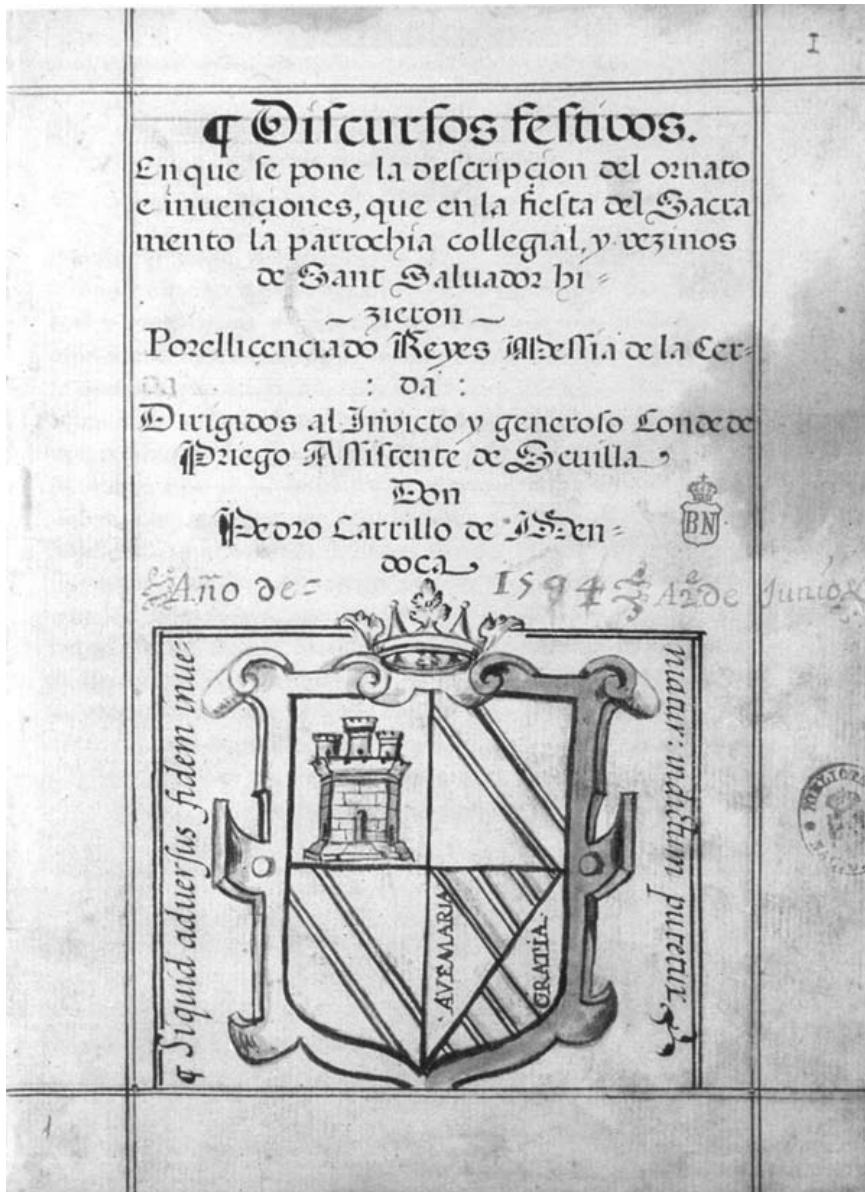 I
¶ Discursos festivos.
En que se pone la descripçion del ornato
e inuençiones, que en la fiesta del Sacra
mento la parrochia collegial, y vezinos
de Sant Saluador hi=
~ zieron ~
Por el liçençiado Reyes Messia de la Cer=
: da :
Dirigidos al Inuicto y generoso Conde de
Priego Assistente de Seuilla,
Don
Pedro Carrillo de Men=
doça
Año de= 1594 A 2 de Junio
BN
¶ Siquid aduersus fidem inue
niatur: indictum putetur.
AVEMARIA
GRATIA.
BIBLIOTE
1